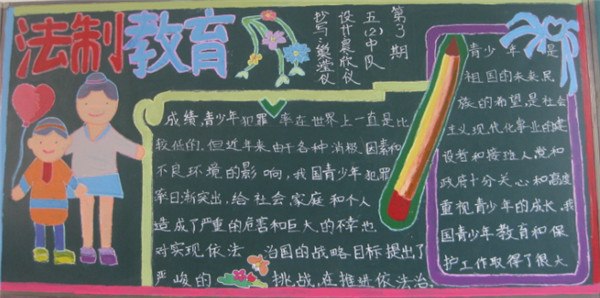 法制教育
第3期
五(2)中队
设计
抄写
成绩,青少年犯罪率在世界上一直是比
较低的.但近年来,由于各种消极因素和
不良环境的影响,我国青少年犯罪
率日渐突出,给社会家庭和个人
造成了严重的危害和巨大的不幸也
对实现依法治国的战略目标提出了
严峻的挑战,在推进依法治
青少年是
祖国的未来民
族的希望是社会
主义现代化事业的建
设者和接班人党和
政府十分关心和高度
重视青少年的成长,我
国青少年教育和保
护工作取得了很大